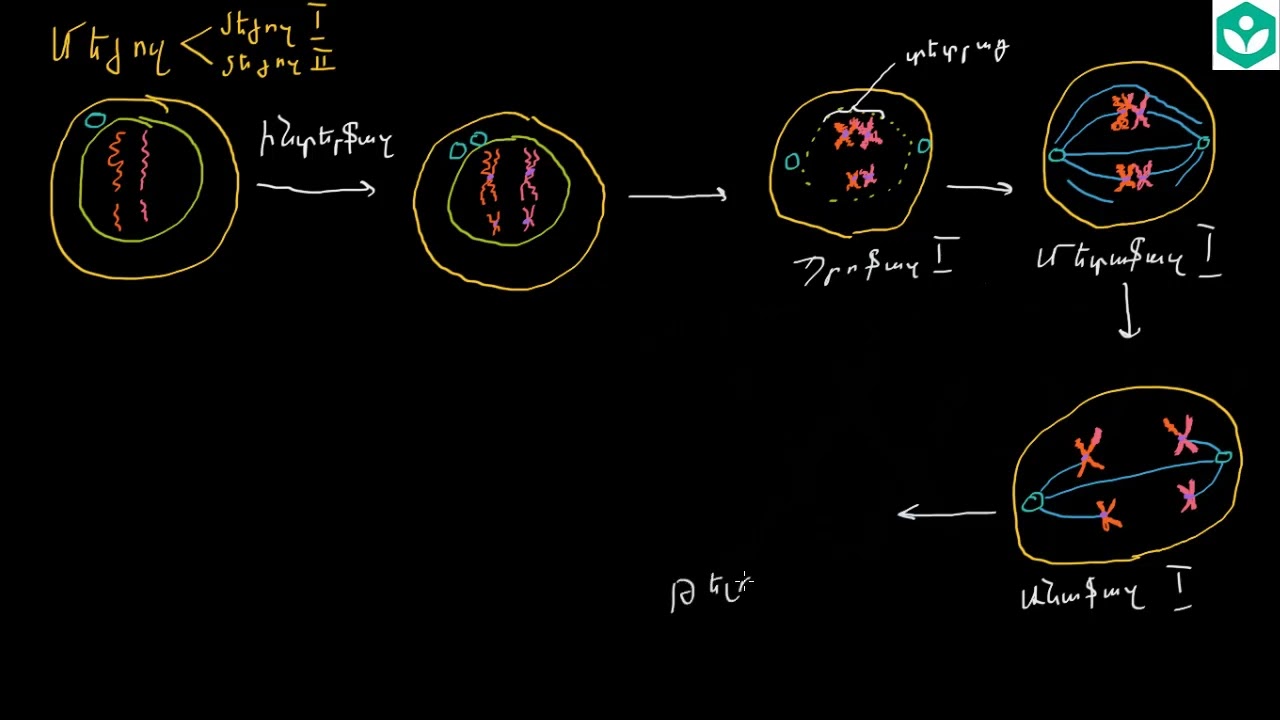 Մեյոզ
Մեյոզ I
Մեյոզ II
ինտերֆազ
տետրադ
Պրոֆազ I
Մետաֆազ I
Անաֆազ I
Թել